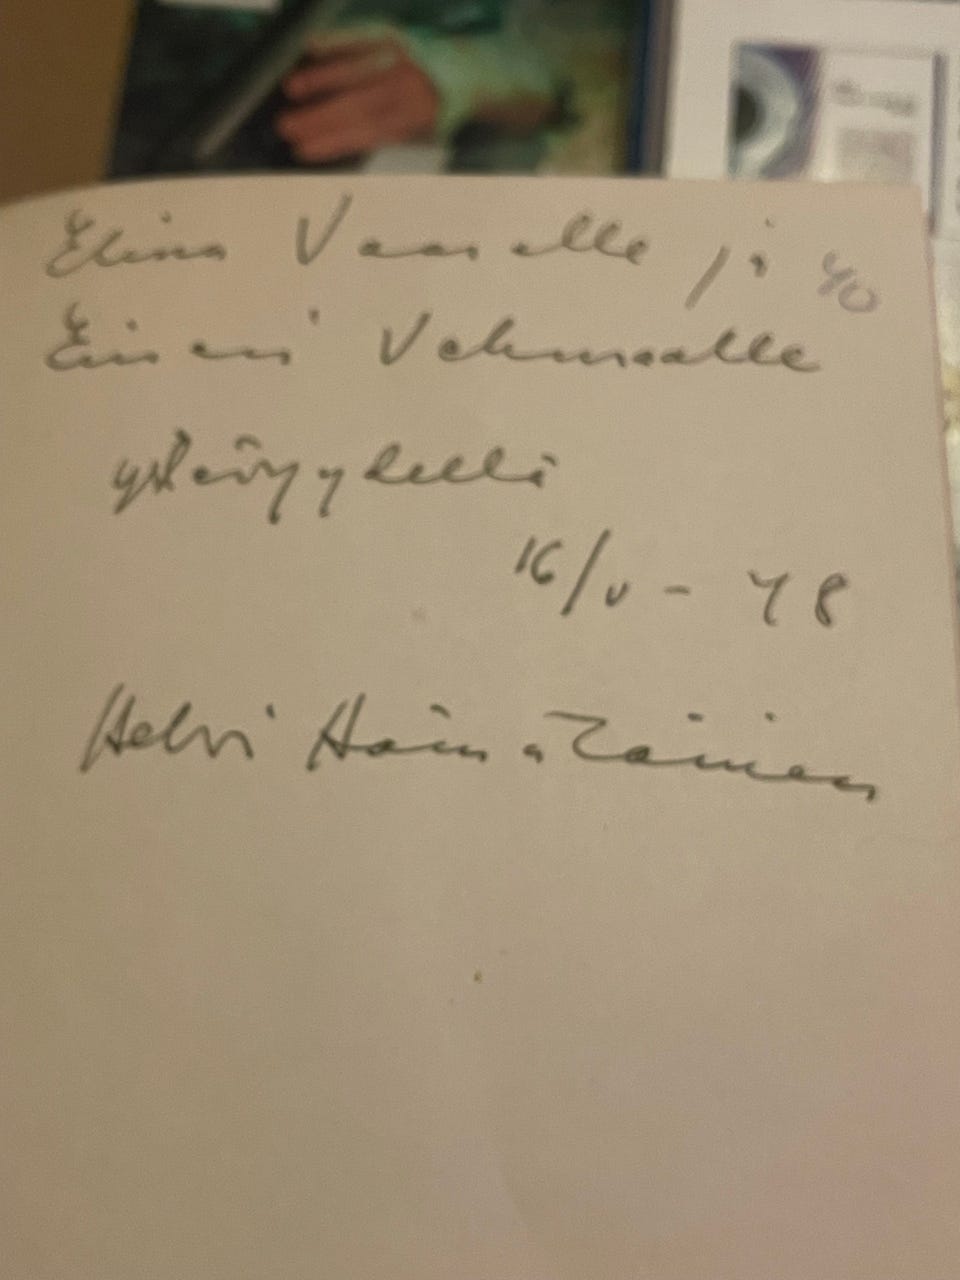 Elina Vaaralle ja 40
Eineri Vehmaalle
ystävyydellä
16/V - 48
Helvi Hämäläinen